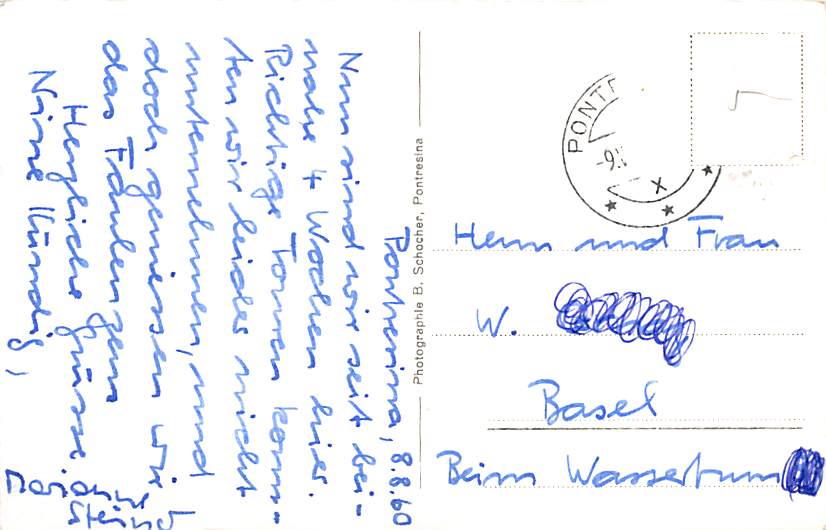 Pontresina, 8.8.60
Nun sind wir seit bei-
nahe 4 Wochen hier.
Richtige Touren konn-
ten wir leider nicht
unternehmen, und
doch geniessen wir
das Faulenzen
Herzliche Grüsse
Photographie B. Schocher, Pontresina
PONTR
-9.
X
5
Herrn und Frau
W.
Basel
Beim Wasserturm